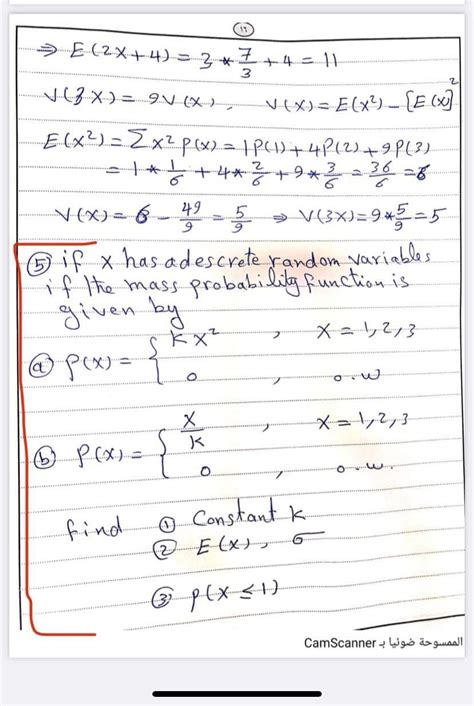 ١٢
⇒ E(2x+4) = 3 * 7/3 + 4 = 11
V(3X) = 9V(x), V(x) = E(x²) - [E(x)]²
E(x²) = Σ x² P(x) = 1P(1) + 4P(2) + 9P(3)
= 1 * 1/6 + 4 * 2/6 + 9 * 3/6 = 36/6 = 6
V(X) = 6 - 49/9 = 5/9 ⇒ V(3X) = 9 * 5/9 = 5
⑤ if x has a descrete random variables
if the mass probability function is
given by
ⓐ P(x) = { kx² , x = 1, 2, 3
0 , o.w
ⓑ P(x) = { x/k , x = 1, 2, 3
0 , o.w.
find ① Constant k
② E(x), σ
③ p(x ≤ 1)
الممسوحة ضوئيا بـ CamScanner